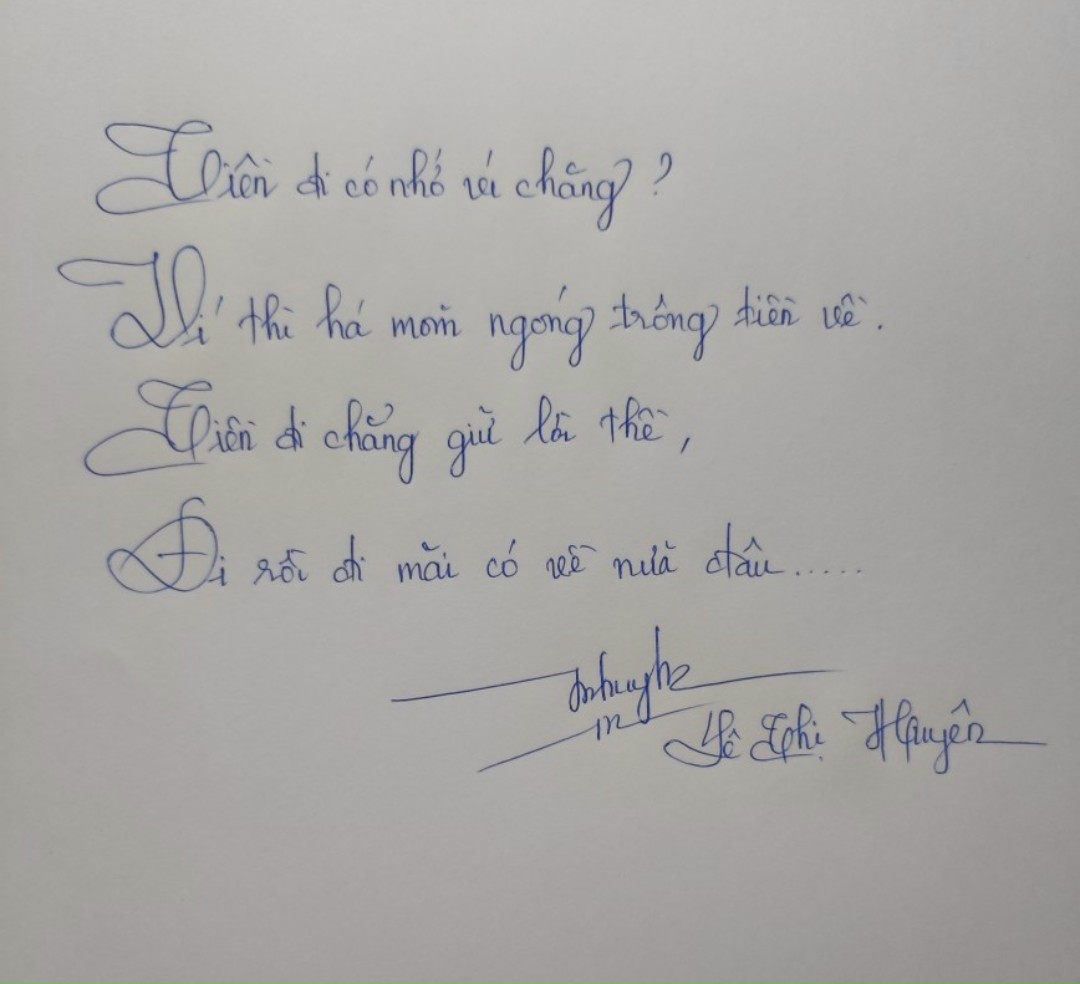 Tiền đi có nhớ ví chăng?
Ví thì há mồm ngóng trông tiền về.
Tiền đi chẳng giữ lời thề,
Đi rồi đi mãi có về nữa đâu.....
Lê Thị Huyên